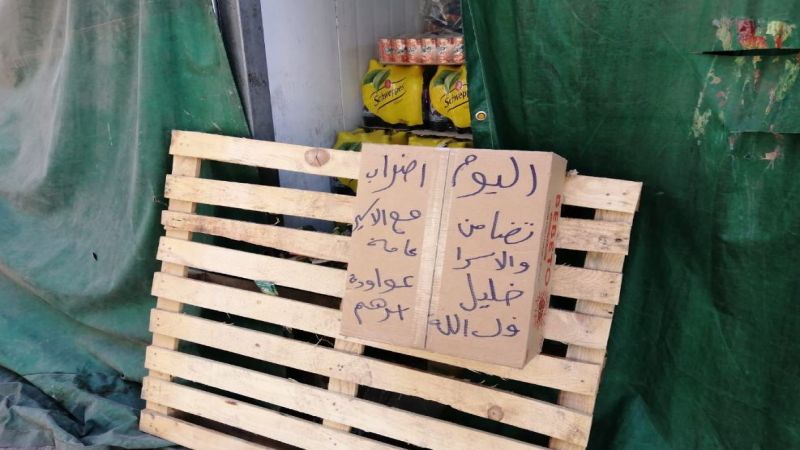 Schweppes
Schweppes
اليوم اضراب
تضامن مع الاسير
والاسرا عامة
خليل عواودة
فك الله اسرهم
BEBETO